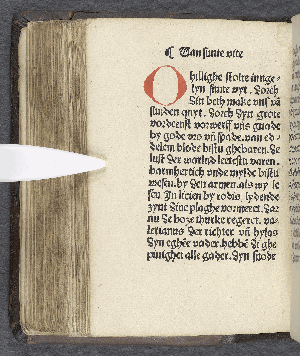 ¶ Van sunte vite
O hillighe stolte iunge-
lyn sunte vyt. dorch
din beth make vns vā
sunden qwyt. dorch dyn grote
vordenst vorwerff vns gnade
by gode vro vñ spade. van ed-
delem blode bistu ghebaren. de
lust der werlnd letestu varen.
barmhertich vnde mylde bistu
wesen. by den armen als wy le
sen In licien by rodis lydende
pynt dine plaghe vormeret. dar
nu de boze thurke regeret. va-
lerianus der richter vñ hylas
dyn eghē vader. hebbē di ghe
pinighet alle gader. dyn stode